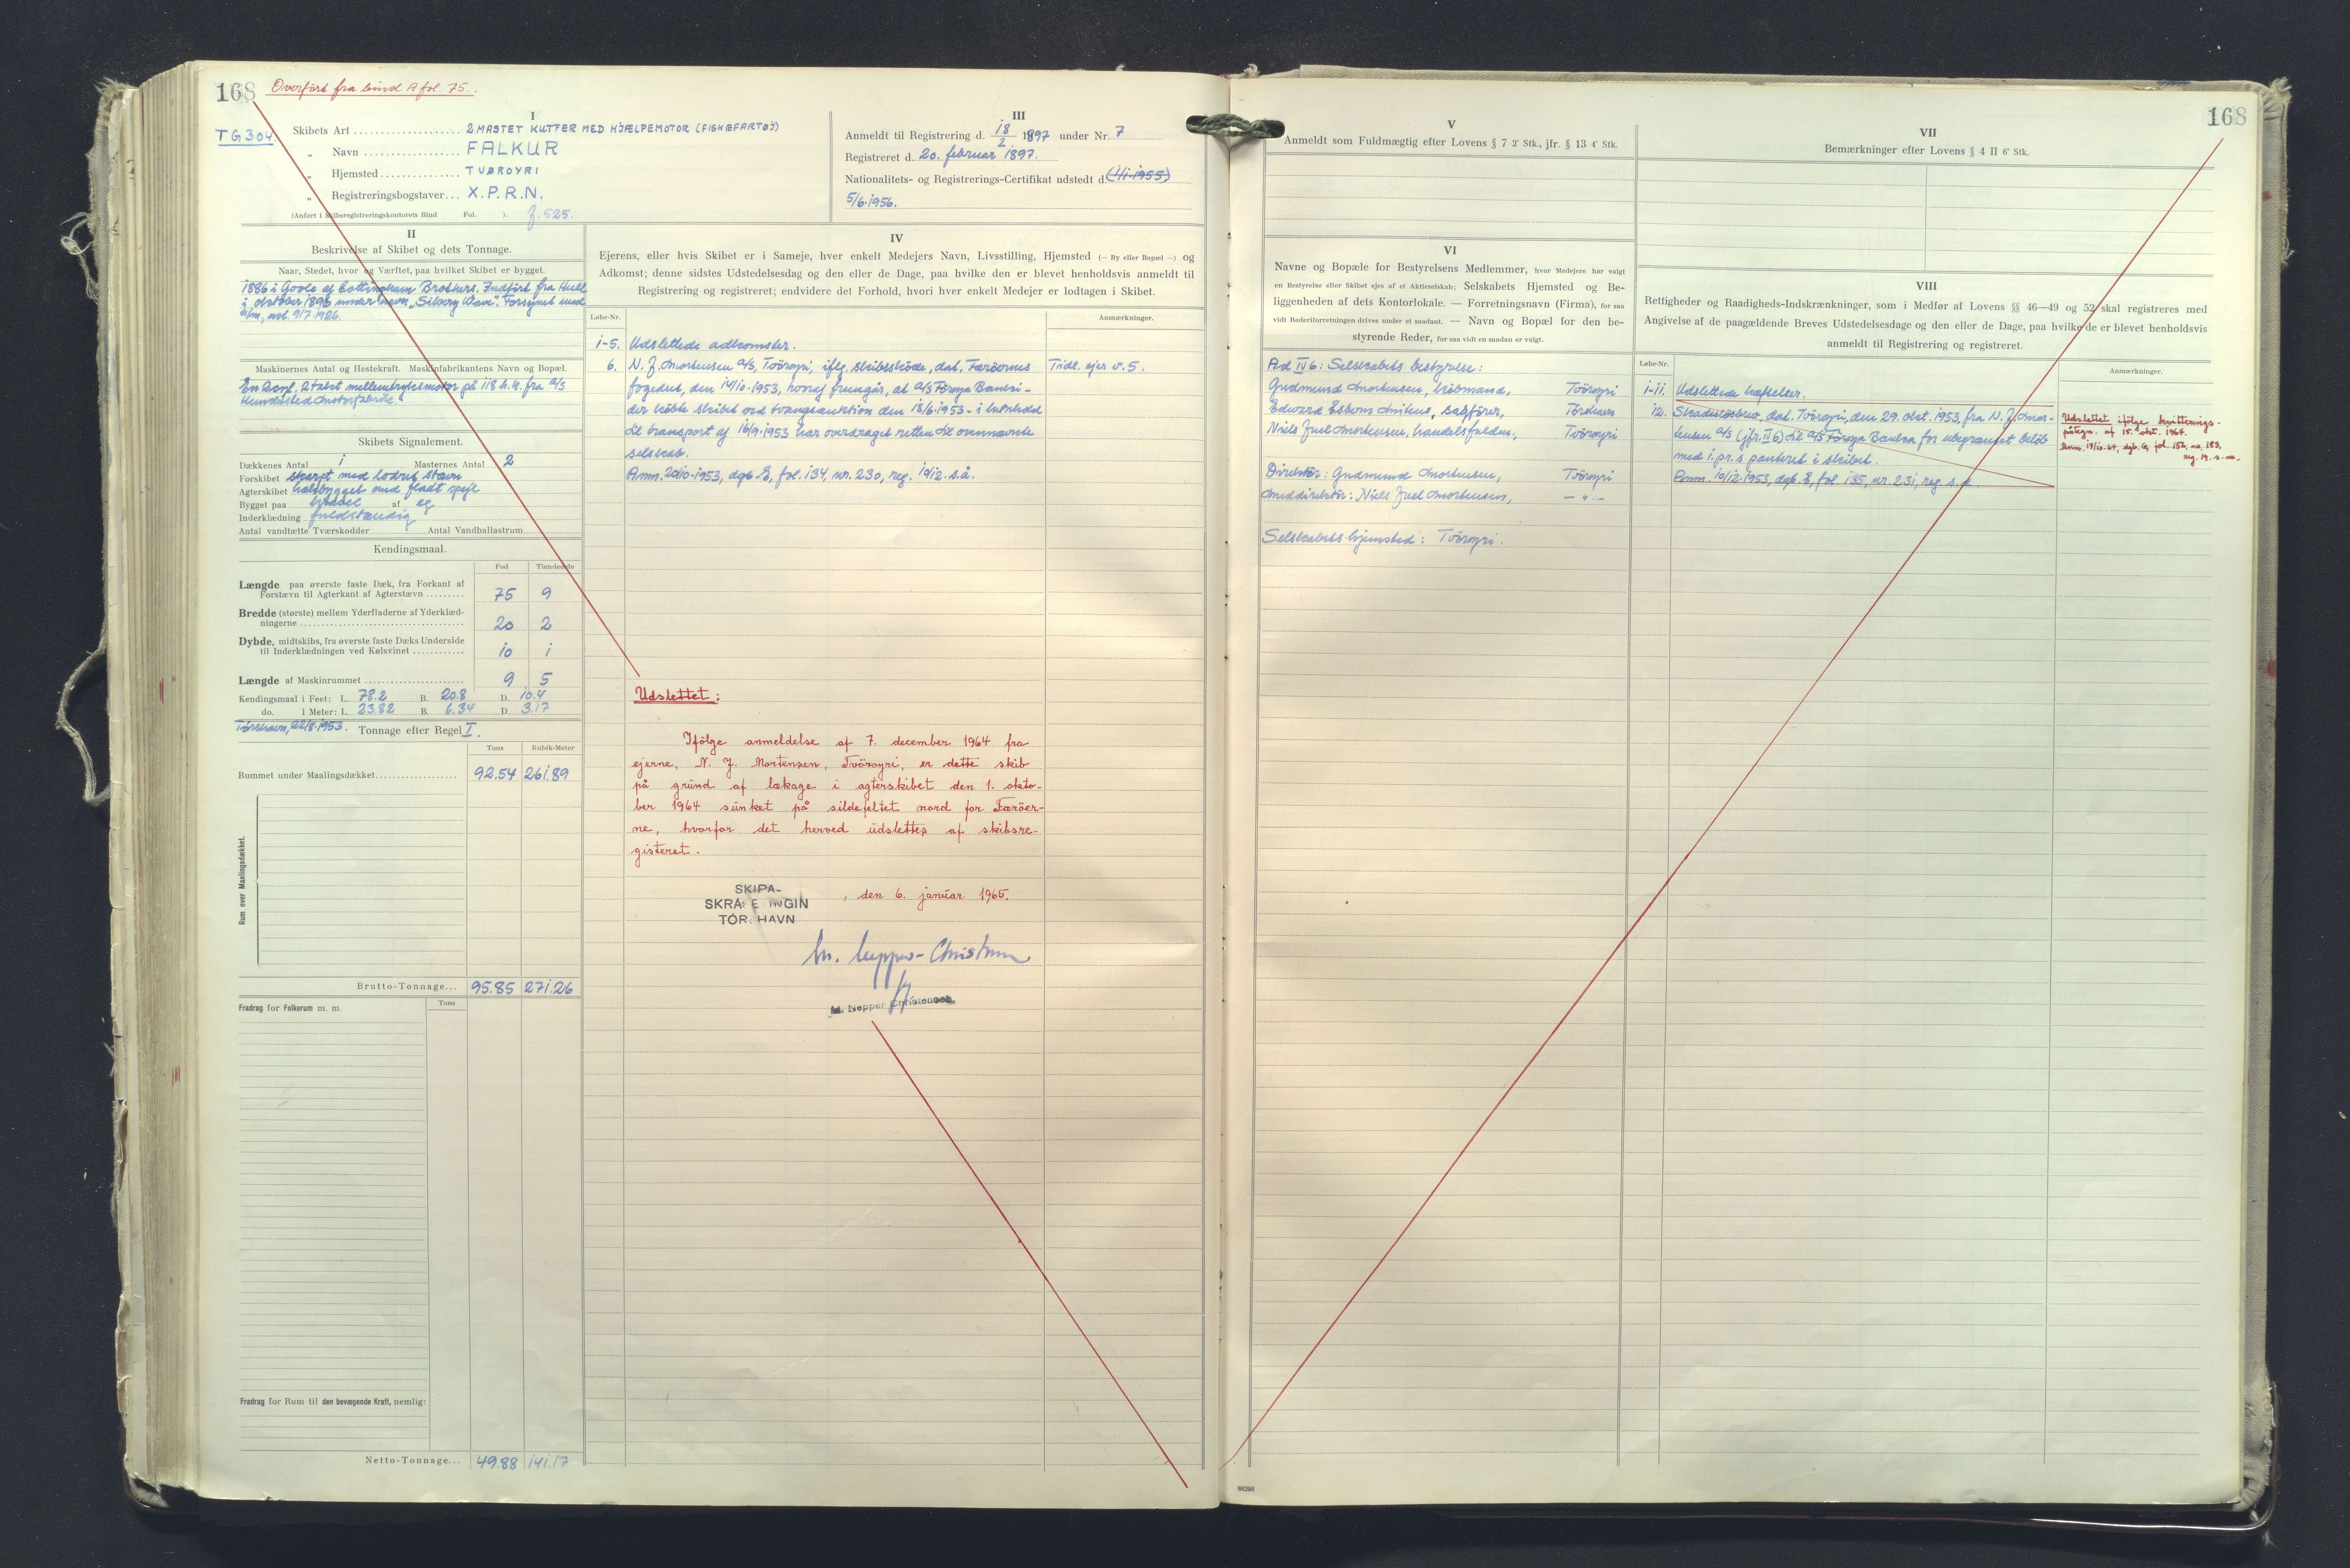 168 Overført fra bind A fol. 75.
TG 304
I
Skibets Art 2 MASTET KUTTER MED HJÆLPEMOTOR (FISKEFARTØJ)
„ Navn FALKUR
„ Hjemsted TVØROYRI
„ Registreringsbogstaver X.P.R.N.
(Anført i Skibsregistreringskontorets Bind Fol. ). f. 525.
III
Anmeldt til Registrering d. 18/2 1897 under Nr. 7
Registreret d. 20. februar 1897.
Nationalitets- og Registrerings-Certifikat udstedt d. (1/1.1955)
5/6.1956.
II
Beskrivelse af Skibet og dets Tonnage.
Naar, Stedet, hvor og Værftet, paa hvilket Skibet er bygget.
1886 i Goole af Cottingham Brothers. Indført fra Hull
i oktober 1896 under navn „Silvery Wave". Forsynet med
h/m, 9/7.1926.
Maskinernes Antal og Hestekraft. Maskinfabrikantens Navn og Bopæl.
En 2cyl. 2takt mellemtryksmotor på 118 h.k. fra A/S
Hundested Motorfabrik.
Skibets Signalement.
Dækkenes Antal 1 Masternes Antal 2
Forskibet skarpt med lodret stævn
Agterskibet halvbygget med fladt spejl
Bygget paa kravel af eg
Inderklædning fuldstændig
Antal vandtætte Tværskodder Antal Vandballastrum
Kendingsmaal.
Fod Tiendedele
Længde paa øverste faste Dæk, fra Forkant af
Forstævn til Agterkant af Agterstævn 75 9
Bredde (største) mellem Yderfladerne af Yderklæd-
ningerne 20 2
Dybde, midtskibs, fra øverste faste Dæks Underside
til Inderklædningen ved Kølsvinet 10 1
Længde af Maskinrummet 9 5
Kendingsmaal i Feet: L. 78.2 B. 20.8 D. 10.4
do. i Meter: L. 23.82 B. 6.34 D. 3.17
Tórshavn, 22/8.1953. Tonnage efter Regel I.
Tons Kubik-Meter
Rummet under Maalingsdækket 92.54 261.89
Rum over Maalingsdækket.
Brutto-Tonnage 95.85 271.26
Fradrag for Folkerum m. m. Tons
Fradrag for Rum til den bevægende Kraft, nemlig:
Netto-Tonnage 49.88 141.17
IV
Ejerens, eller hvis Skibet er i Sameje, hver enkelt Medejers Navn, Livsstilling, Hjemsted (— By eller Bopæl —) og
Adkomst; denne sidstes Udstedelsesdag og den eller de Dage, paa hvilke den er blevet henholdsvis anmeldt til
Registrering og registreret; endvidere det Forhold, hvori hver enkelt Medejer er lodtagen i Skibet.
Løbe-Nr. Anmærkninger.
1-5. Udslettede adkomster.
6. N. J. Mortensen A/S, Tvöroyri, iflg. skibsskøde, dat. Færöernes Tidl. ejer v. 5.
fogedret, den 14/10.1953, hvoraf fremgår, at A/S Föroya Banki-
der købte skibet ved tvangsauktion den 18/6.1953 - i henhold
til transport af 16/9.1953 har overdraget retten til ovennævnte
selskab.
Anm. 20/10.1953, dgb. E, fol. 134, nr. 230, reg. 19/12. s.å.
Udslettet:
Ifølge anmeldelse af 7. december 1964 fra
ejerne, N. J. Mortensen, Tvöroyri, er dette skib
på grund af lækage i agterskibet den 1. okto-
ber 1964 sunket på sildefeltet nord for Færöer-
ne, hvorfor det herved udslettes af skibsre-
gisteret.
SKIPA-
SKRÁ E INGIN
TÓR HAVN
, den 6. januar 1965.
M. Nepper-Christensen
M. Nepper Christensen
168
V
Anmeldt som Fuldmægtig efter Lovens § 7 2' Stk., jfr. § 13 4' Stk.
VII
Bemærkninger efter Lovens § 4 II 6' Stk.
VI
Navne og Bopæle for Bestyrelsens Medlemmer, hvor Medejere har valgt
en Bestyrelse eller Skibet ejes af et Aktieselskab; Selskabets Hjemsted og Be-
liggenheden af dets Kontorlokale. — Forretningsnavn (Firma), for saa
vidt Rederiforretningen drives under et saadant. — Navn og Bopæl for den be-
styrende Reder, for saa vidt en saadan er valgt.
Ad IV 6: Selskabets bestyrelse:
Gudmund Mortensen, købmand, Tvöroyri
Edward Mitens, sagfører, Tórshavn
Niels Juel Mortensen, handelsfuldm., Tvöroyri
Direktør: Gudmund Mortensen, Tvöroyri
Meddirektør: Niels Juel Mortensen, — " —
Selskabets hjemsted: Tvöroyri.
VIII
Rettigheder og Raadigheds-Indskrænkninger, som i Medfør af Lovens §§ 46—49 og 52 skal registreres med
Angivelse af de paagældende Breves Udstedelsesdage og den eller de Dage, paa hvilke de er blevet henholdsvis
anmeldt til Registrering og registreret.
Løbe-Nr. Anmærkninger.
1-11. Udslettede hæftelser.
12. Skadesløsbrev, dat. Tvöroyri, den 29. okt. 1953, fra N. J. Mor-
tensen A/S (jfr. IV 6) til A/S Föroya Banka for ubegrænset beløb
med 1. pr.s panteret i skibet.
Anm. 19/12.1953, dgb. E, fol. 135, nr. 231, reg. s.d.
Udslettet ifølge kvitterings-
påtegn. af 15. okt. 1964.
Anm. 19/10.64, dgb. G, fol. 152, nr. 183,
reg. 19. s.m.
86298